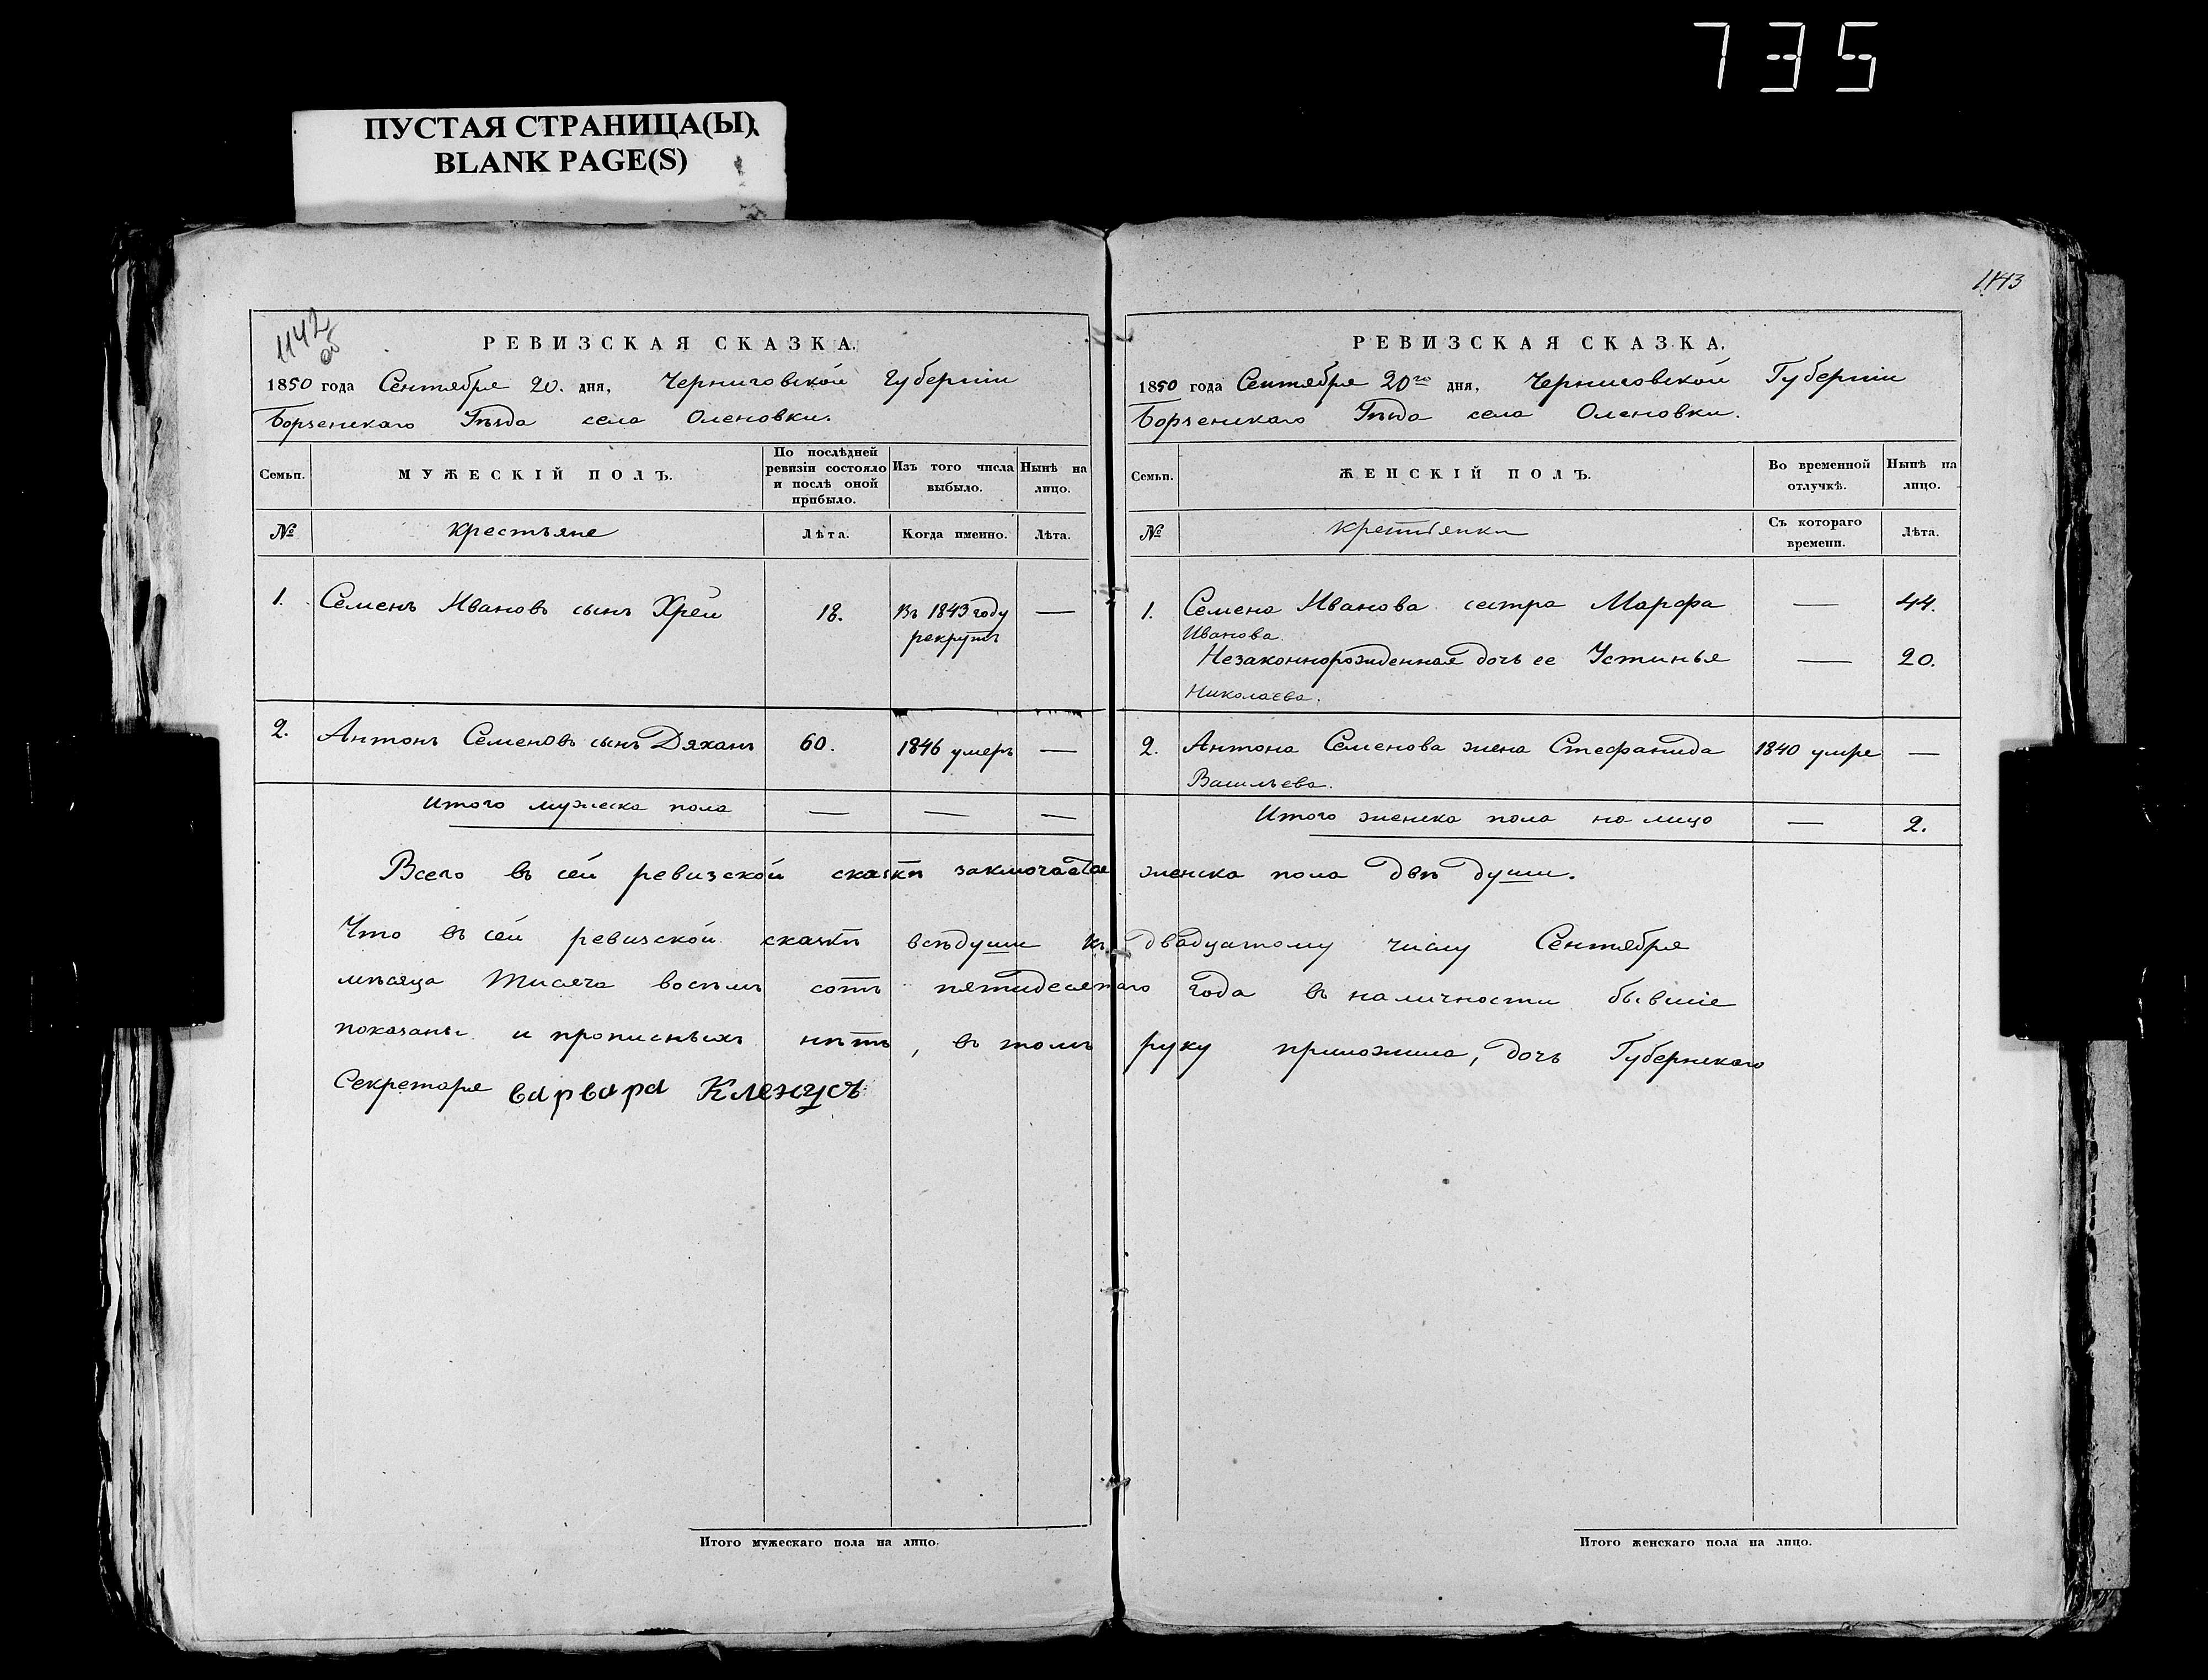 735
ПУСТАЯ СТРАНИЦА(Ы)
BLANK PAGE(S)
1142
об
РЕВИЗСКАЯ СКАЗКА.
1850 года Сентября 20. дня, Черниговской Губернiи
Борзенскаго Уѣзда села Оленовки.
Семьи.
МУЖЕСКIЙ ПОЛЪ.
По послѣдней ревизiи состояло и послѣ оной прибыло.
Изъ того числа выбыло.
Нынѣ на лицо.
№
крестьяне
Лѣта.
Когда именно.
Лѣта.
1. Семенъ Ивановъ сынъ Хрей 18. Въ 1843 году —
рекрутъ
2. Антонъ Семеновъ сынъ Дяханъ 60. 1846 умеръ —
Итого мужеска пола — — —
1143
РЕВИЗСКАЯ СКАЗКА.
1850 года Сентября 20го дня, Черниговской Губернiи
Борзенскаго Уѣзда села Оленовки.
Семьи.
ЖЕНСКIЙ ПОЛЪ.
Во временной отлучкѣ.
Нынѣ на лицо.
№
крестьянки
Съ котораго времени.
Лѣта.
1. Семена Иванова сестра Марфа — 44.
Иванова.
Незаконнорожденная дочь ее Устинья — 20.
Николаева.
2. Антона Семенова жена Стефанида 1840 умре —
Васильева.
Итого женска пола на лицо — 2.
Всего въ сей ревизской сказкѣ заключается женска пола двѣ души.
Что въ сей ревизской сказкѣ всѣ души къ двадцатому числу Сентября
мѣсяца тисяча восѣмъ сотъ пятидесятаго года въ наличности бывшiе
показаны и прописныхъ нѣтъ, въ томъ руку приложила, дочь Губернскаго
Секретаря варвара Кленусъ
Итого мужескаго пола на лицо.
Итого женскаго пола на лицо.